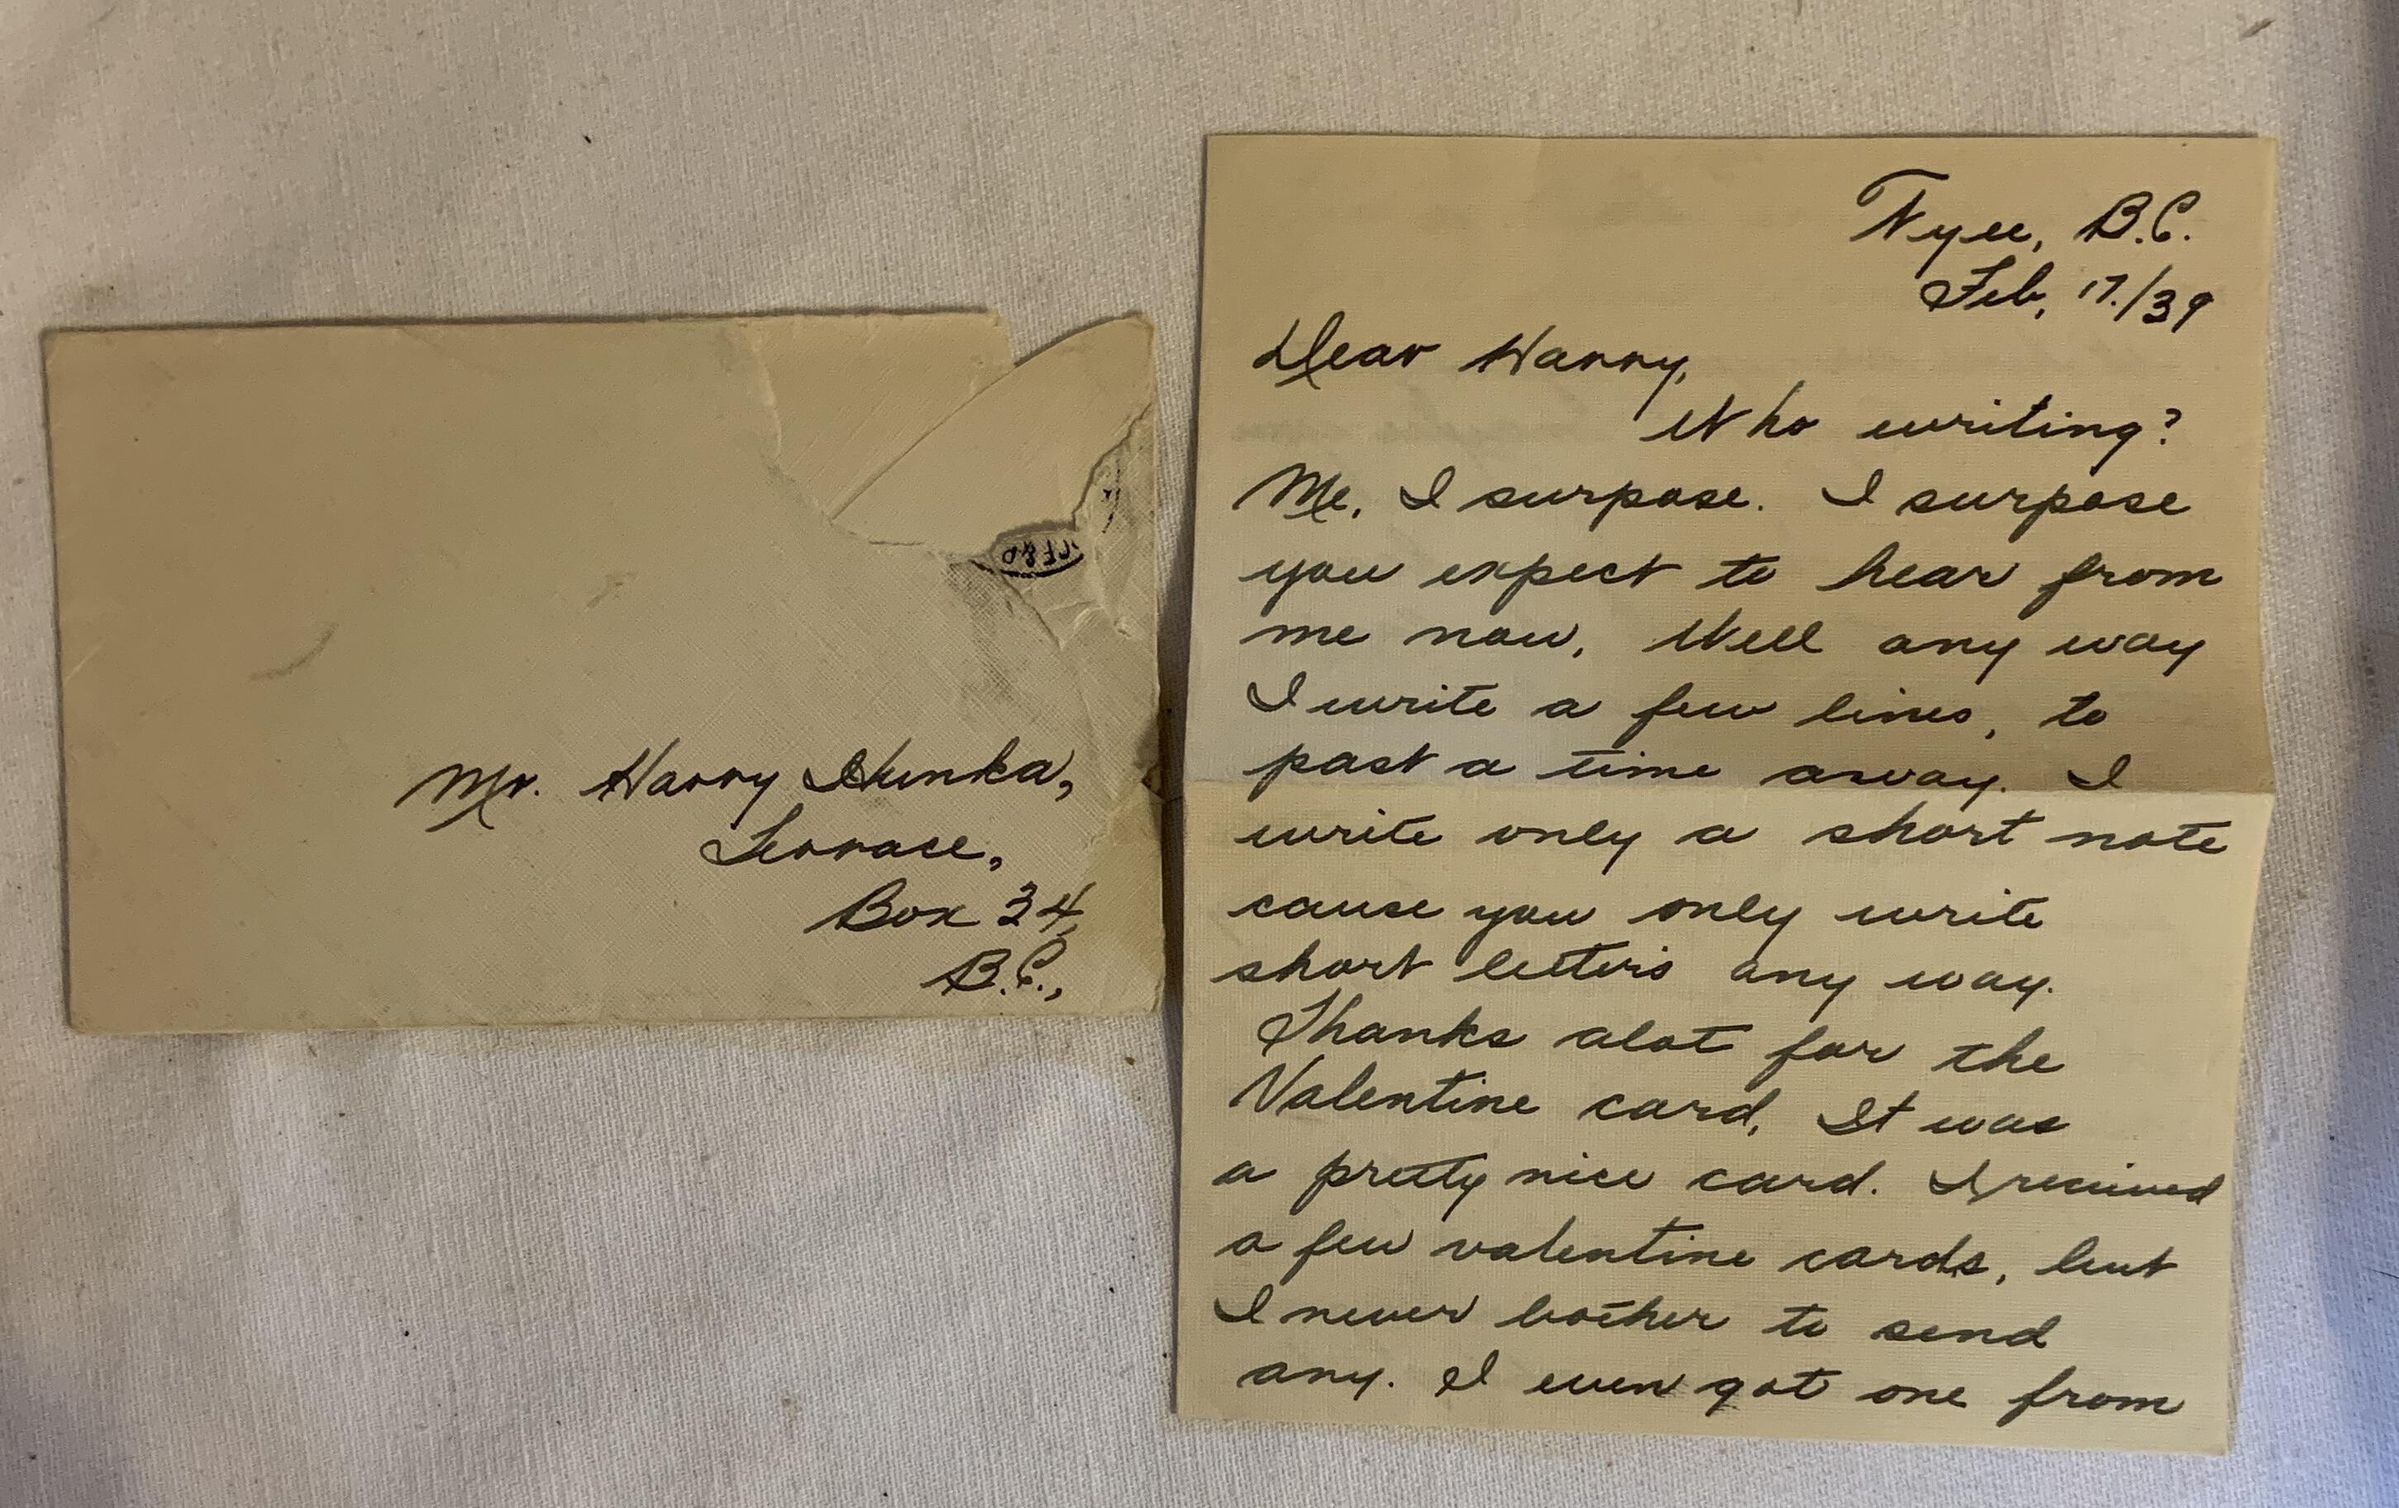 Mr. Harry
Terrace,
Box 34,
B.C.,
Tyee, B.C.
Feb, 17./39
Dear Harry,
Who writing?
Me. I surpose. I surpose
you expect to hear from
me now. Well any way
I write a few lines, to
past a time away. I
write only a short note
cause you only write
short letters any way.
Thanks alot for the
Valentine card, It was
a pretty nice card. I received
a few valentine cards, but
I never bother to send
any. I even got one from